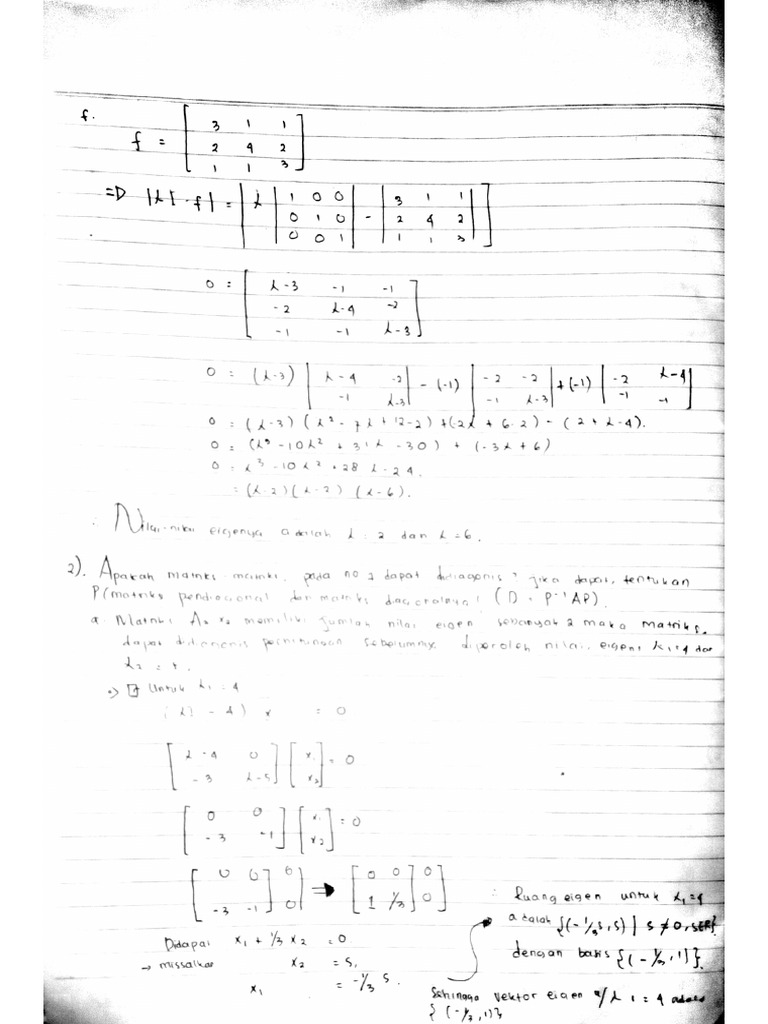 f.
f = [ 3 1 1
2 4 2
1 1 3 ]
=D |λI - f| = | λ | 1 0 0 | - | 3 1 1 | ]
| 0 1 0 | | 2 4 2 |
| 0 0 1 | | 1 1 3 |
0 = [ λ-3 -1 -1
-2 λ-4 -2
-1 -1 λ-3 ]
0 = (λ-3) | λ-4 -2 | - (-1) | -2 -2 | + (-1) | -2 λ-4 |
| -1 λ-3 | | -1 λ-3 | | -1 -1 |
0 = (λ-3) (λ² - 7λ + 12-2) + (-2λ + 6-2) - (2 + λ-4).
0 = (λ³ -10λ² + 31λ - 30) + (-3λ + 6)
0 = λ³ -10λ² +28 λ - 24.
= (λ-2)(λ-2) (λ-6).
∴ Nilai-nilai eigennya adalah λ = 2 dan λ = 6.
2). Apakah matriks-matriks pada no 1 dapat didiagonis? jika dapat, tentukan
P (matriks pendiagonal dan matriks diagonalnya! (D = P⁻¹AP).
a. Matriks A₂ₓ₂ memiliki jumlah nilai eigen sebanyak 2 maka matriks
dapat perhitungan sebelumnya diperoleh nilai eigen λ₁=4 dan
λ₂ =
Untuk λ₁ = 4
(λI - A) x = 0
[ λ-4 0
-3 λ-5 ] [ x₁
x₂ ] = 0
[ 0 0
-3 -1 ] [ x₁
x₂ ] = 0
[ 0 0 | 0
-3 -1 | 0 ] ⇒ [ 0 0 | 0
1 1/3 | 0 ]
Didapat x₁ + 1/3 x₂ = 0
→ missalkan x₂ = s,
x₁ = -1/3 s
∴ Ruang eigen untuk λ₁=4
adalah {(-1/3 s, s) | s ≠ 0, s∈R}
dengan basis {(-1/3, 1)}.
Sehingga vektor eigen u/ λ1 = 4 adalah
{(-1/3, 1)}